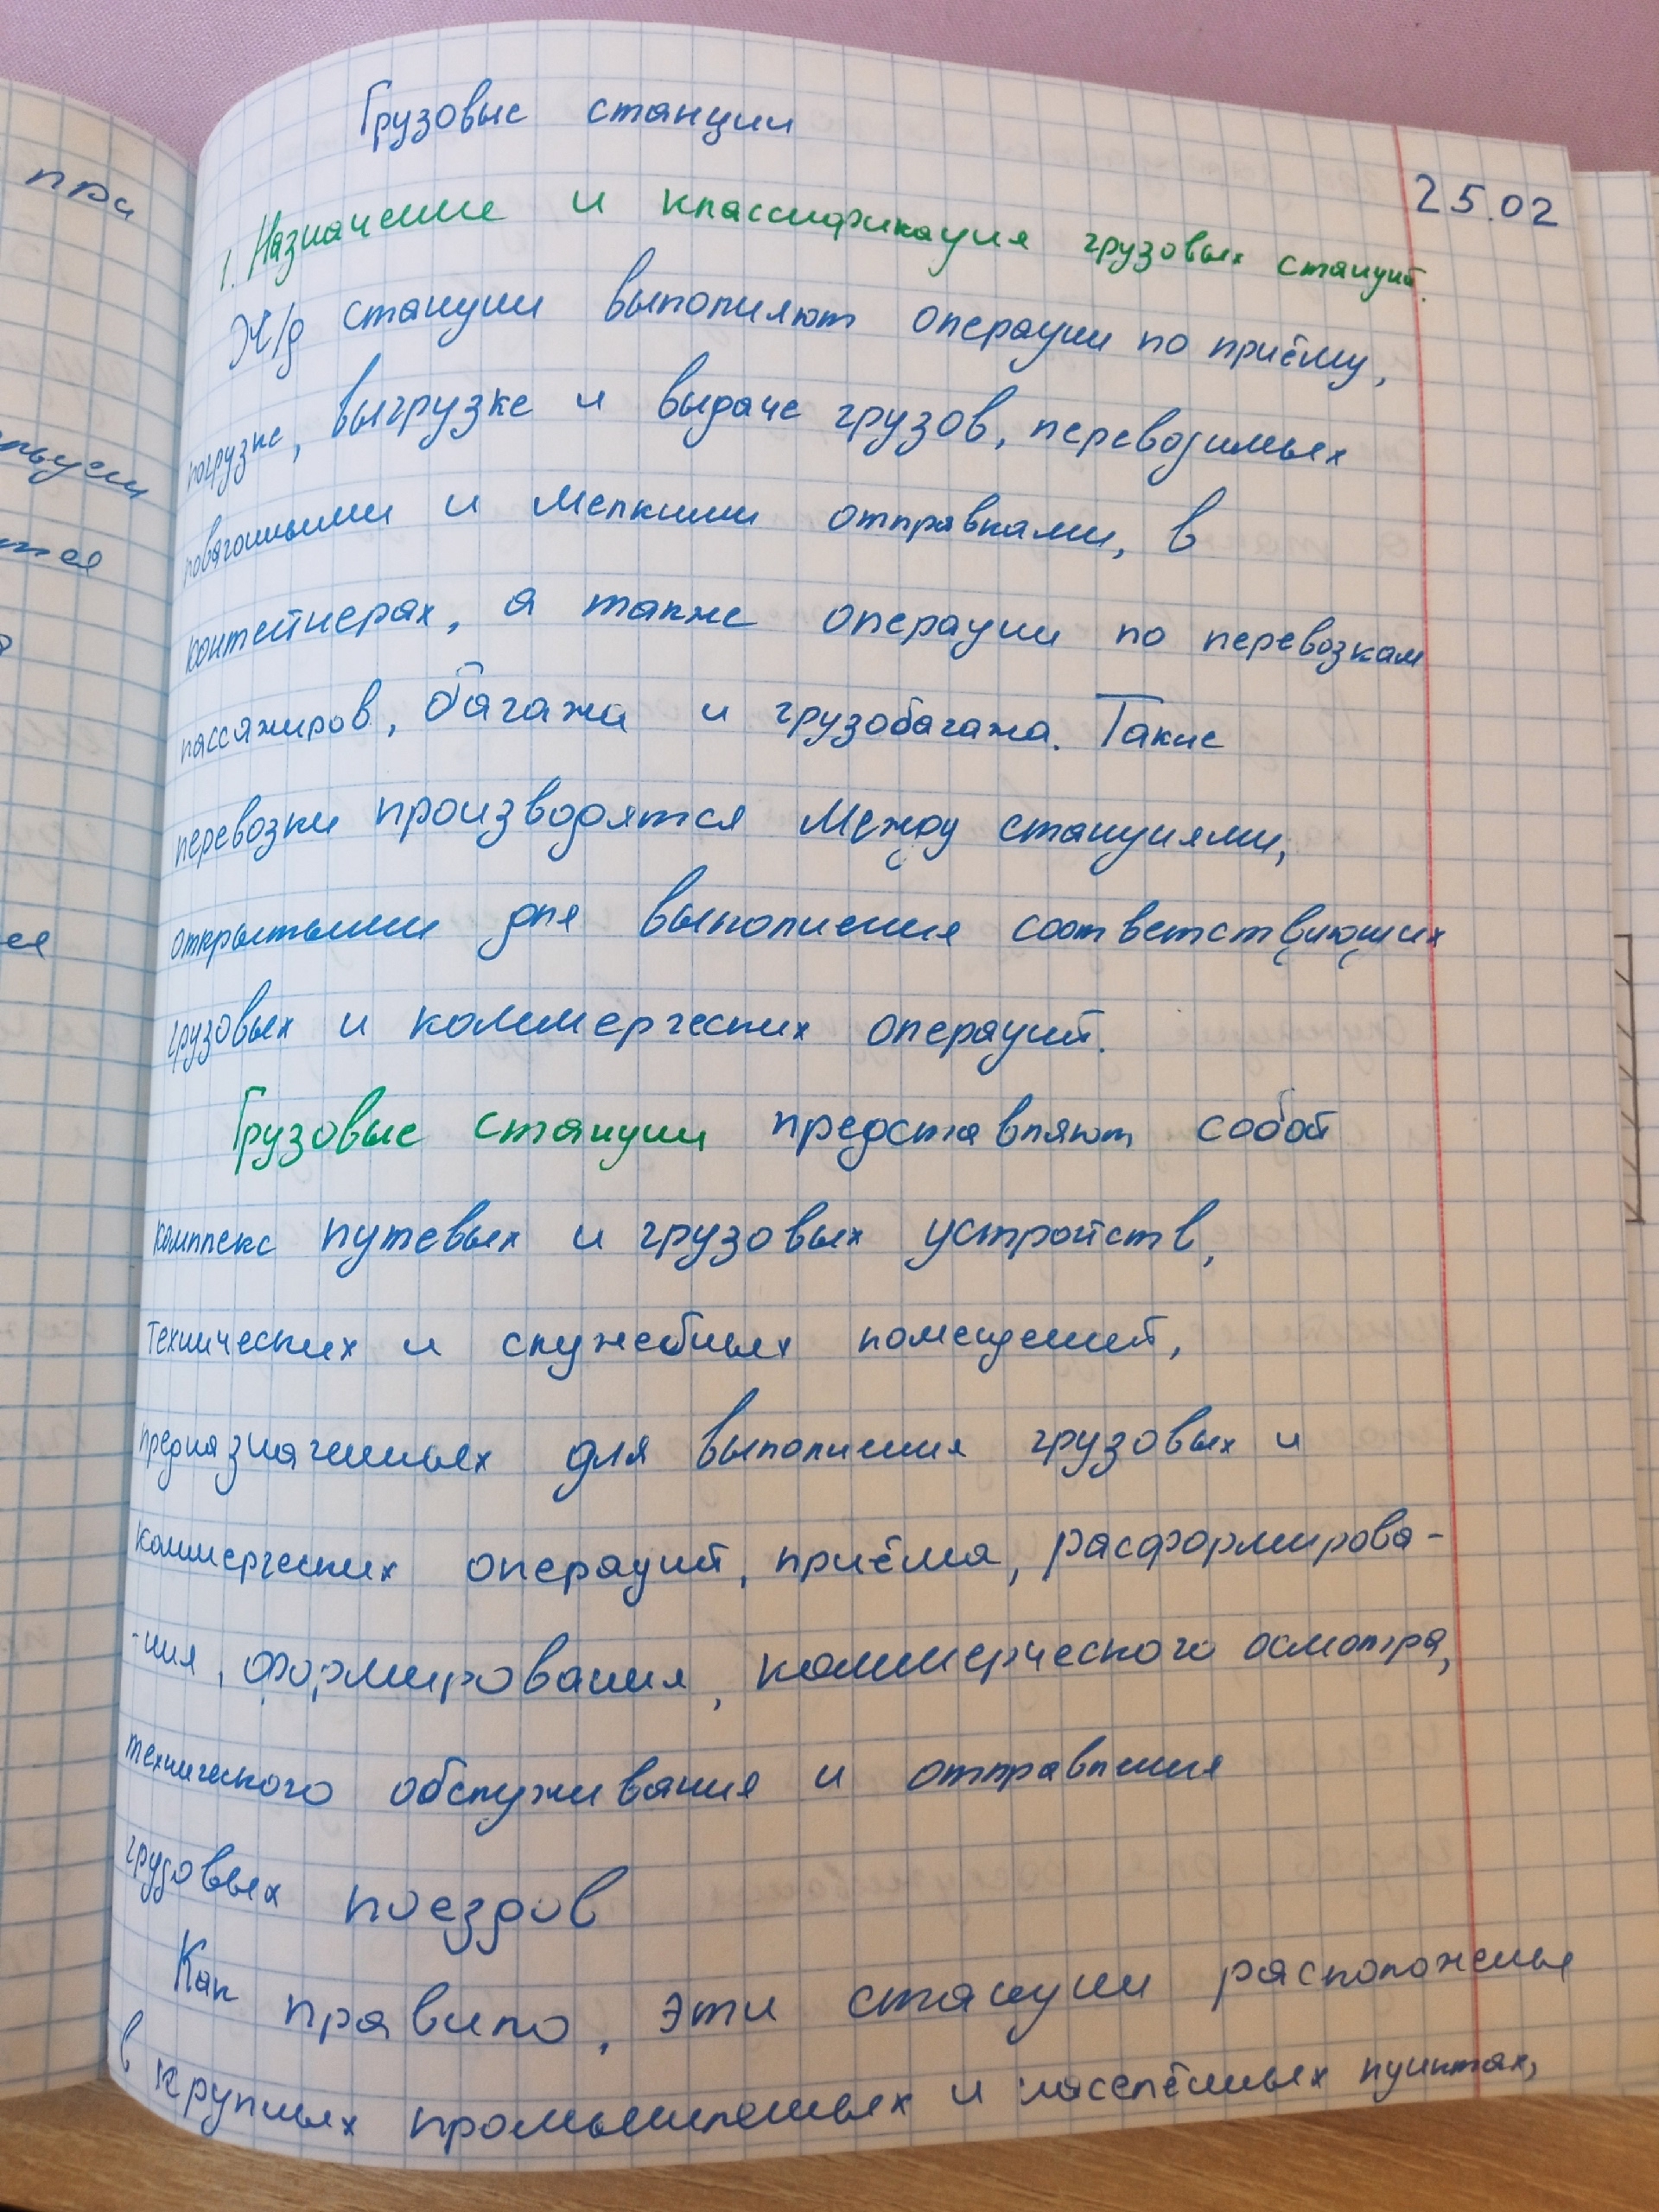 Грузовые станции
25.02
1. Назначение и классификация грузовых станций.
Ж/д станции выполняют операции по приёму,
погрузке, выгрузке и выдаче грузов, перевозимых
повагонными и мелкими отправками, в
контейнерах, а также операции по перевозкам
пассажиров, багажа и грузобагажа. Такие
перевозки производятся между станциями,
открытыми для выполнения соответствующих
грузовых и коммерческих операций.
Грузовые станции представляют собой
комплекс путевых и грузовых устройств,
технических и служебных помещений,
предназначенных для выполнения грузовых и
коммерческих операций, приёма, расформирова-
-ния, формирования, коммерческого осмотра,
технического обслуживания и отправления
грузовых поездов
Как правило, эти станции расположены
в крупных промышленных и населённых пунктах,
при